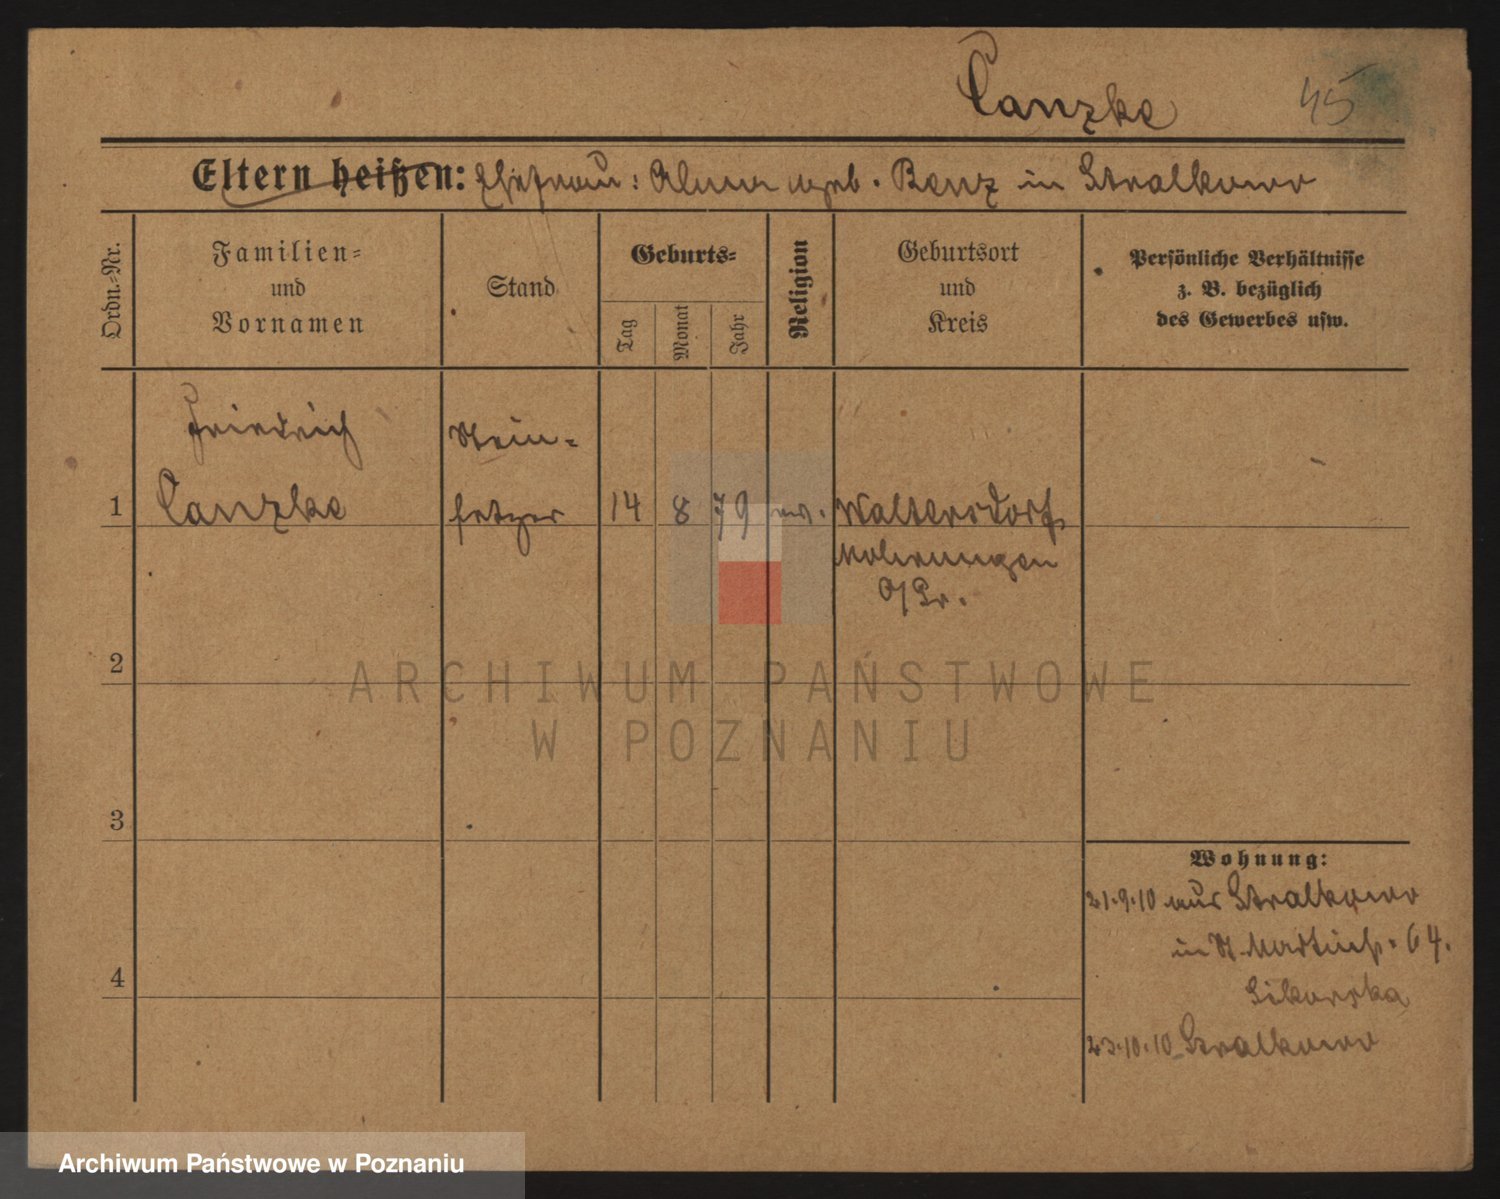 Canzke 45
Eltern heißen: Ehefrau: Alma geb. Benz in Stralkowo
Ordn.-Nr.
Familien-
und
Vornamen
Stand
Geburts-
Tag
Monat
Jahr
Religion
Geburtsort
und
Kreis
Persönliche Verhältnisse
z. B. bezüglich
des Gewerbes usw.
Friedrich Stein-
1 Canzke setzer 14 8 79 ev. Waltersdorf,
Mohrungen
O/Pr.
2
3
4
Wohnung:
21.9.10 aus Stralkowo
in St. Martinstr. 64.
Sikorska
23.10.10 Stralkowo
ARCHIWUM PAŃSTWOWE
W POZNANIU
Archiwum Państwowe w Poznaniu